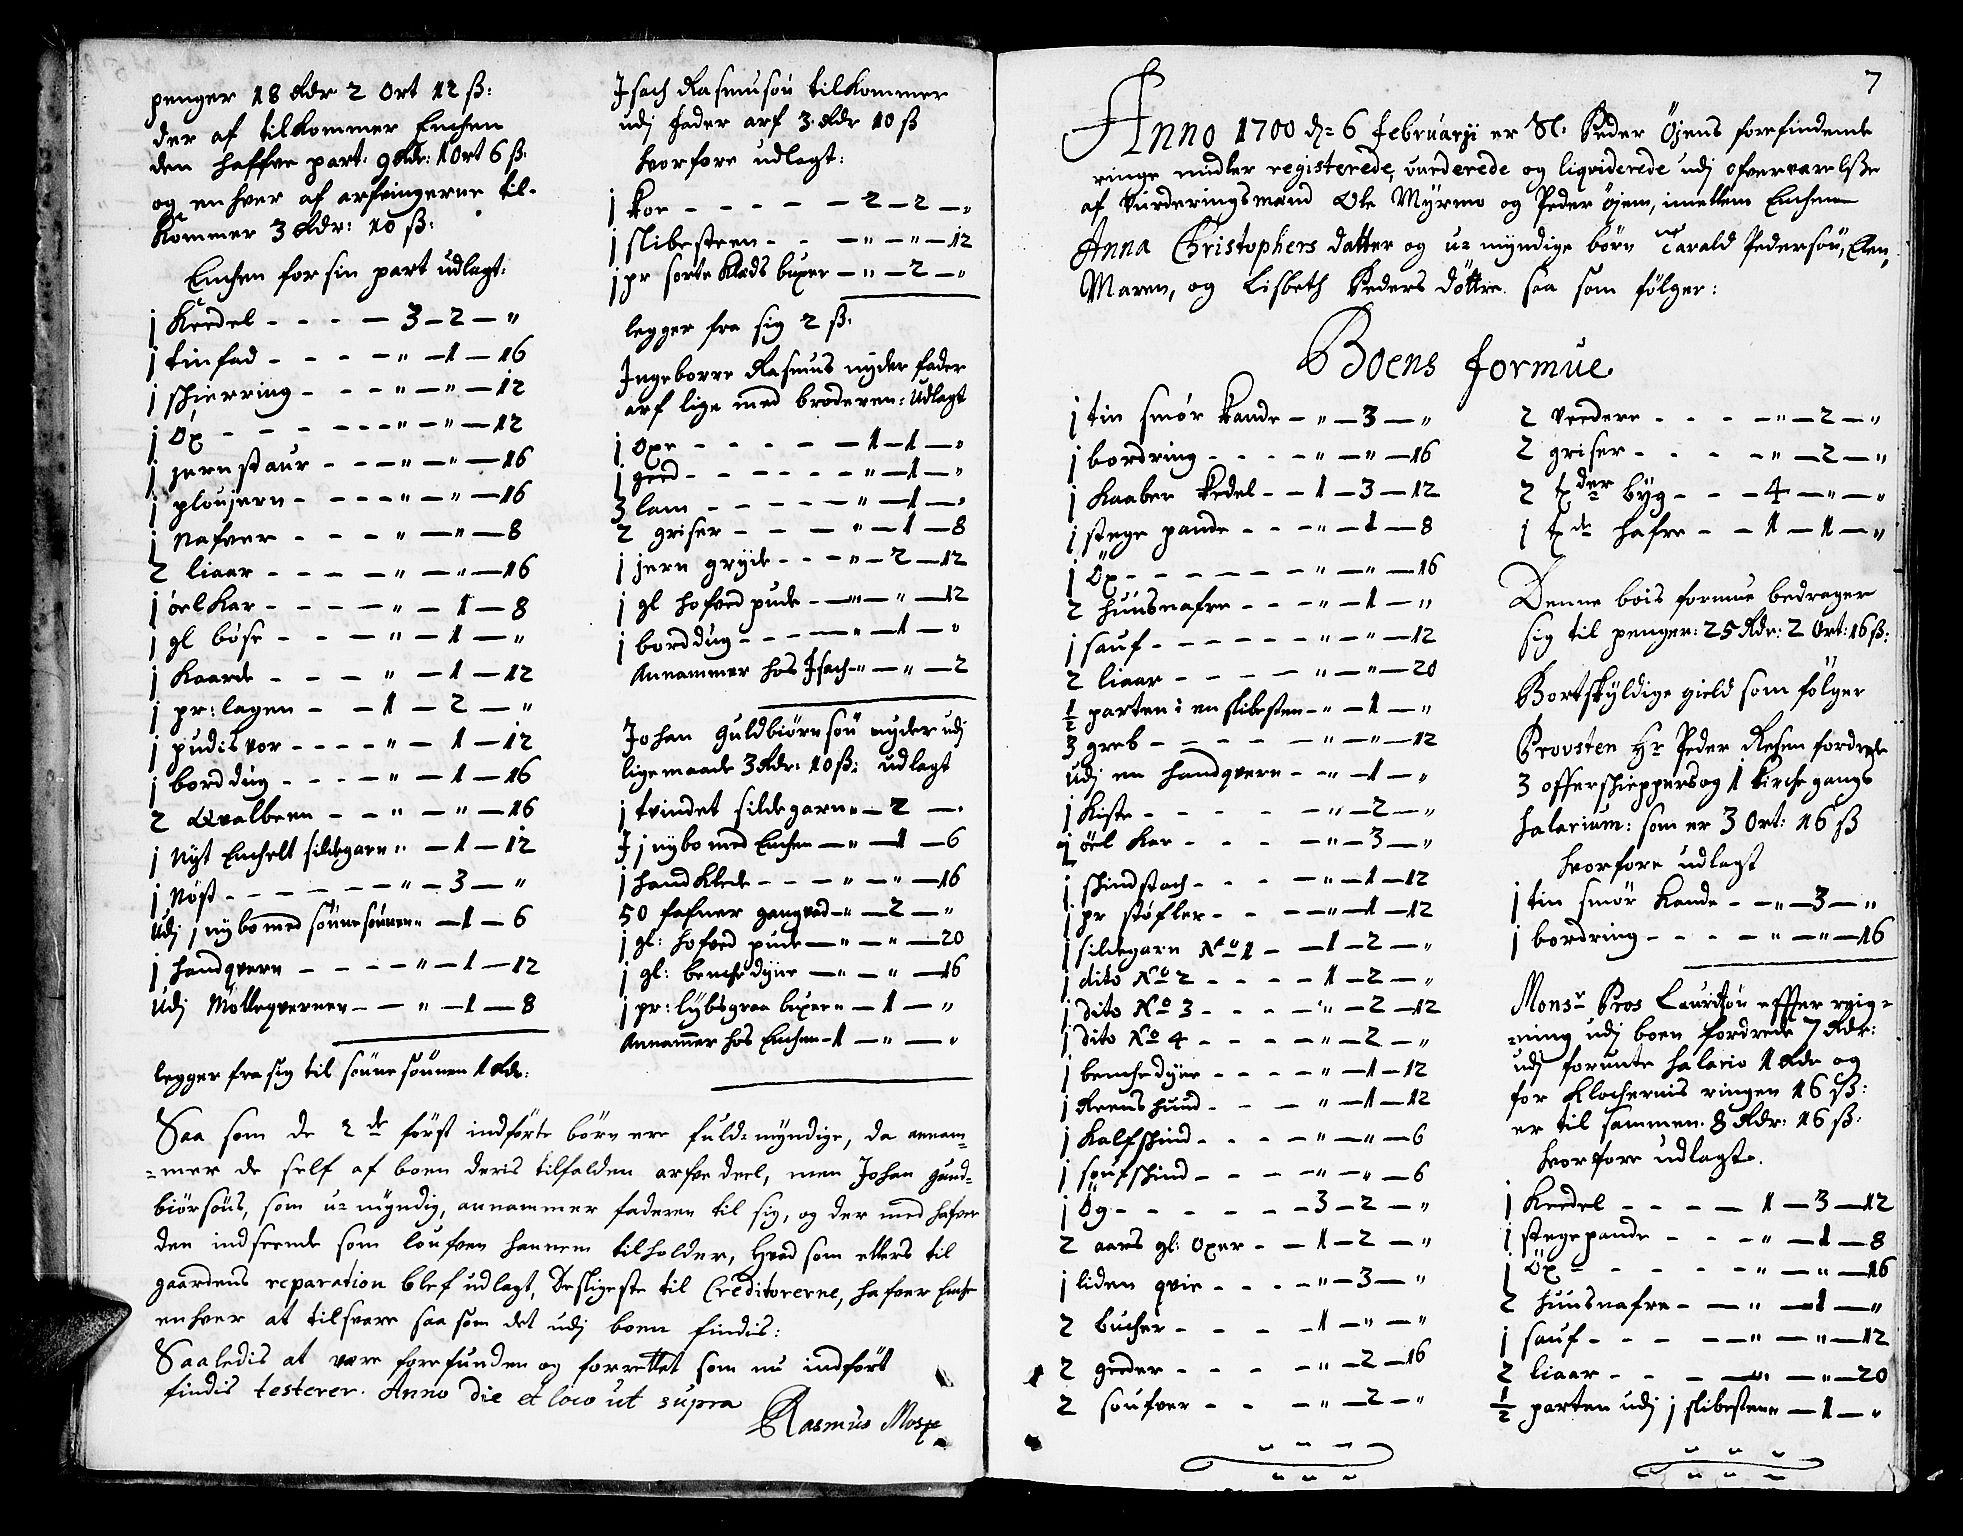 penger 18 Rdr 2 Ort 12 ß:
der af tilkommer Enchen
den halffve part: 9 Rdr: 1 Ort 6 ß:
og en hver af arfvingerne til-
kommer 3 Rdr: 10 ß:
Enchen for sin part udlagt:
1 Keedel - - - - 3 - 2 - "
1 tinfad - - - - " - 1 - 16
1 skierring - - - " - " - 12
1 Öx - - - - - " - " - 12
1 jernstaur - - - " - " - 16
1 ploujern - - - - " - " - 16
1 Nafver - - - - " - " - 8
2 liaar - - - - " - " - 16
1 öelkar - - - - " - 1 - 8
1 gl böse - - - " - 1 - "
1 Kaarde - - - " - 1 - 12
1 pr: lagen - - 1 - 2 - "
1 pudisvor - - - - " - 1 - 12
1 borddug - - - - " - 1 - 16
2 Qvalbeen - - " - " - 16
1 Nyt Enchelt sildegarn " - 1 - 12
1 Nöst - - - - - " - 3 - "
Udj 1 nybo med sönnesönnen " - 1 - 6
1 handqvern - - - - " - 1 - 12
Udj Möllеqverner - - " - 1 - 8
legger fra sig til sönnesönnen 1 Rdr:
Isach Rasmusön tilkommer
udj fader arf 3 Rdr 10 ß
hvorfore udlagt:
1 koe - - - - - 2 - 2 - "
1 slibesteen - - - " - " - 12
1 pr sorte klæds buxer - " - 2 - "
legger fra sig 2 ß:
Ingeborre Rasmus nyder fader
arf lige med broderen: Udlagt
1 Oxe - - - - - 1 - 1 - "
1 geed - - - - - - " - 1 - "
3 lam - - - - - " - 1 - "
2 griser - - - - " - 1 - 8
1 jern gryde - - - " - 2 - 12
1 gl hofved pude - - " - " - 12
1 borddug - - - - " - 1 - "
Annammer hos Isach - " - " - 2
Johan Guldbiörnsön nyder udj
ligemaade 3 Rdr: 10 ß: udlagt
1 tvindet sildegarn " - 2 - "
I 1 nybo med Enchen - " - 1 - 6
1 handklede - - - " - " - 16
50 fafner gangvad - " - 2 - "
1 gl: hofved pude - " - " - 20
1 gl: benchedyne - " - " - 16
1 pr: lybsgraa buxer " - 1 - "
Annammer hos Enchen - 1 - " - "
Saa som de 2de först indförte börn ere fuld-myndige, da annam-
=mer de self af boen deris tilfalden arfve deel, men Johan Guld-
biörsöns, som u-myndig, annammer faderen til sig, og der med hafver
den indseende som loufven hannem tilholder, hvad som ellers til
gaardens reparation blef udlagt, Desligeste til Creditorerne, hafver Enche
enhver at tilsvare saa som det udj boen findis:
Saaledis at være forefunden og forrettet som nu indfört
findis testerer. Anno die et loco ut supra
Rasmus Mosz
7
Anno 1700 d: 6 Februarji er Sl: Peder Öjens forefindende
ringe midler registerede, vurderede og liqviderede udj ofverværelße
af Vurderingsmænd Ole Myrmo og Peder Öjem, imellem Enchen
Anna Christophers datter og u-myndige börn Tarald Pedersön, Elen,
Maren, og Lisbeth Peders döttre saa som fölger:
Boens formue
1 tin smör kande - " - 3 - "
1 bordring - - - - " - " - 16
1 Kaaber kedel - - 1 - 3 - 12
1 stege pande - - - " - 1 - 8
1 Öx - - - - - - " - " - 16
2 huusnafre - - - " - 1 - "
1 sauf - - - - - - " - " - 12
2 liaar - - - - - " - " - 20
1/2 parten i en slibesten - " - 1 - "
3 greb - - - - - " - " - 12
Udj en handqvern - - " - 1 - "
1 Kiste - - - - - " - 2 - "
1 öel kar - - - - " - 3 - "
1 skindstach - - - - " - 1 - 12
1 pr stöfler - - - - " - 1 - 12
1 sildegarn No 1 - - 1 - 2 - "
1 dito No 2 - - - - 1 - 2 - "
1 dito No 3 - - - - " - 2 - 12
1 dito No 4 - - - - " - 2 - "
1 benchedyne - - - - " - 1 - 12
1 Reenshuud - - - " - 1 - 12
1 Kalfskind - - - - " - " - 6
1 soufskind - - - - " - " - 6
1 Ög - - - - - - 3 - 2 - "
2 aars gl: Oxer - - 1 - 2 - "
1 liden qvie - - - - " - 3 - "
2 bucher - - - - 1 - " - "
2 geder - - - - " - 2 - 16
2 soufver - - - " - 2 - "
2 veedere - - - - " - 2 - "
2 griser - - - - " - 2 - "
2 tder byg - - - 4 - " - "
1 tde hafre - - 1 - 1 - "
Denne bois formue bedrager
sig til penger: 25 Rdr: 2 Ort: 16 ß:
Bortskyldige gield som fölger
Provsten Hr Peder Resen fordrede
3 offerskieppers og 1 kirche gangs
Salarium: som er 3 Ort: 16 ß
hvorfore udlagt
1 tin smör kande - - " - 3 - "
1 bordring - - - - " - " - 16
Monsr Bros Lauritzön effter reig-
=ning udj boen fordrede 7 Rdr:
udj forunte Salario 1 Rdr og
for klochernis ringen 16 ß:
er til sammen: 8 Rdr: 16 ß:
hvorfore udlagt.
1 Keedel - - - - 1 - 3 - 12
1 stegepande - - - " - 1 - 8
1 Öx - - - - - " - " - 16
2 huusnafre - - " - 1 - "
1 sauf - - - - - " - " - 12
2 liaar - - - - " - " - 20
1/2 parten udj 1 slibesten " - 1 - "